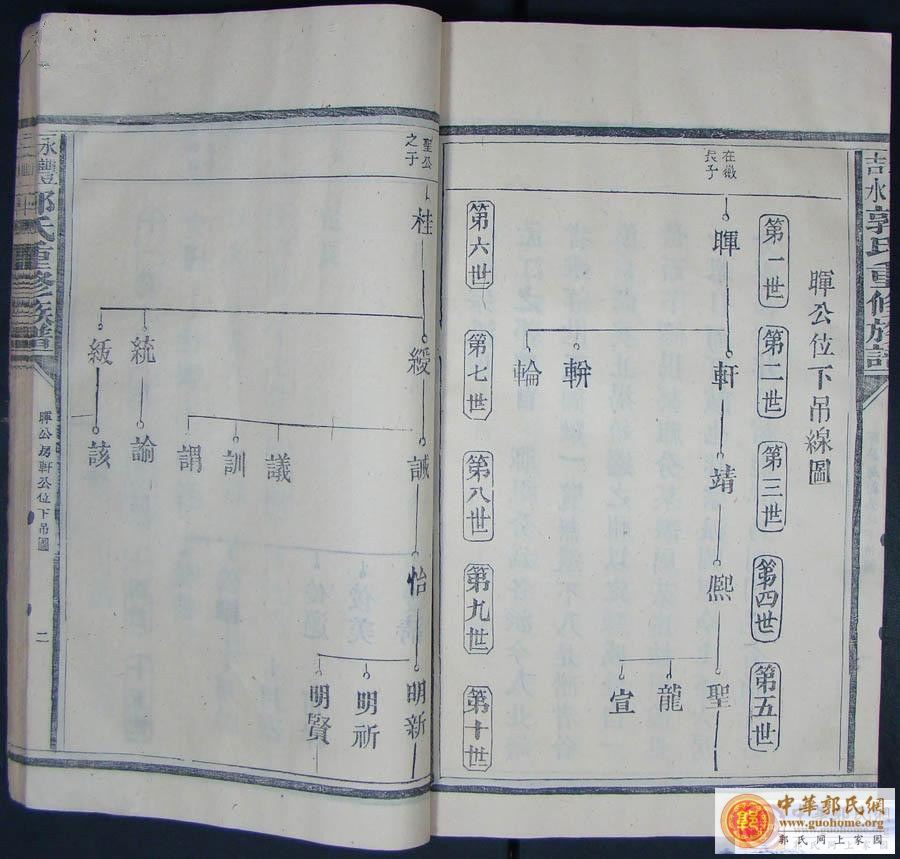 吉水郭氏重修族譜
暉公位下吊線圖
第一世
第二世
第三世
第四世
第五世
在徵長子
暉
軒
靖
熈
聖
軿
龍
輪
宣
第六世
第七世
第八世
第九世
第十世
聖公之子
桂
綬
誠
怡
明新
明祈
議
訓
明賢
謂
統
諭
級
該
永豐郭氏重修族譜
暉公房軒公位下吊圖
二
中華郭氏網
www.guohome.org
郭氏网上家园